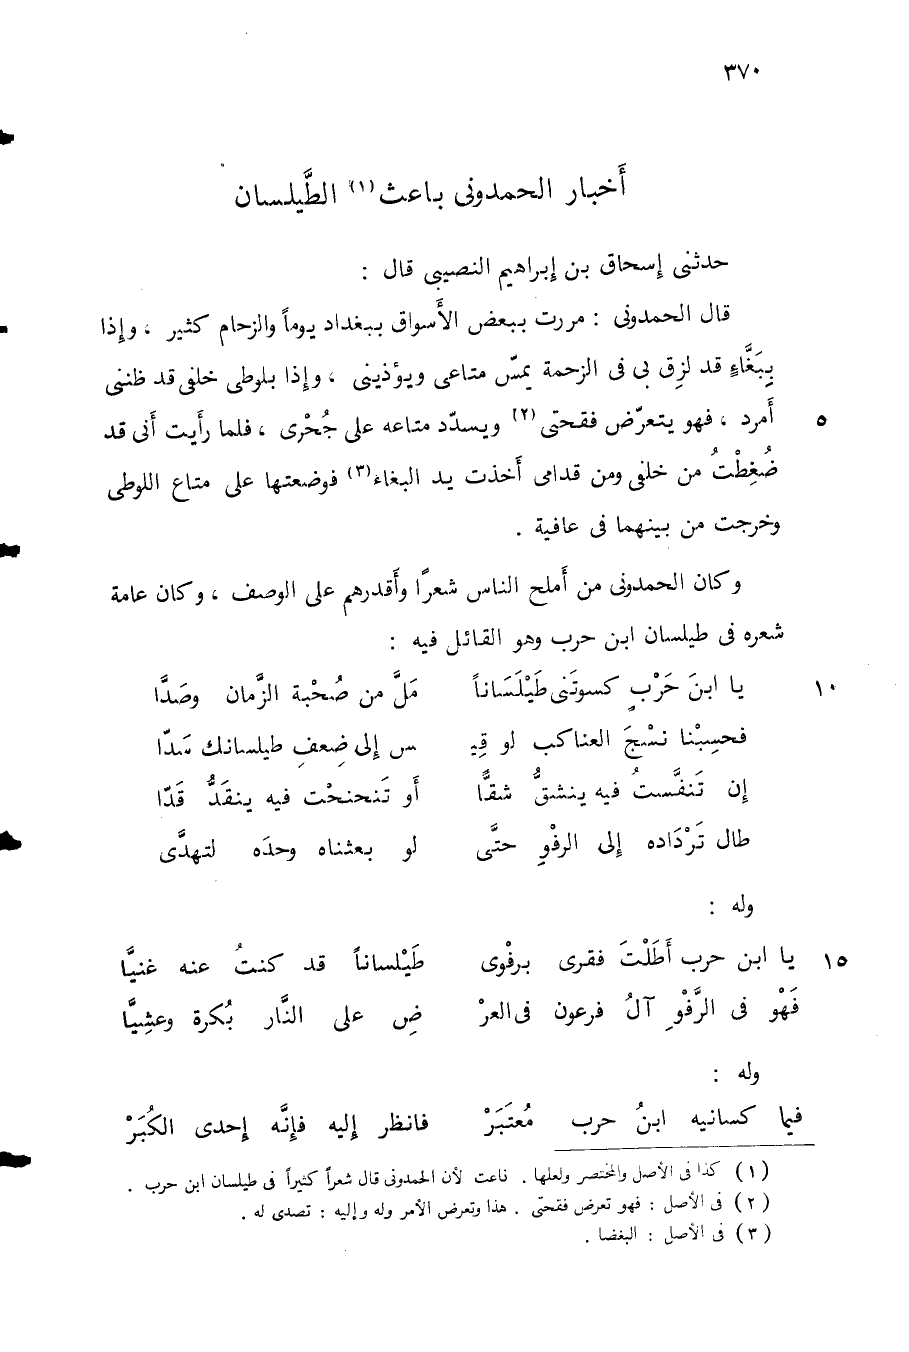 ٣٧٠
أخبار الحمدونى باعث(١) الطَّيلسان
حدثنى إسحاق بن إبراهيم النصيبى قال :
قال الحمدونى : مررت ببعض الأَسواق ببغداد يوماً والزحام كثير ، وإذا
بِبَغَّاءٍ قد لزِق بى فى الزحمة يمسّ متاعى ويؤذينى ، وإذا بلوطى خلفى قد ظننى
أَمرد ، فهو يتعرّض فقحتى(٢) ويسدّد متاعه على جُحْرى ، فلما رأَيت أَنى قد ٥
ضُغِطْتُ من خلفى ومن قدامى أَخذت يد البغاء(٣) فوضعتها على متاع اللوطى
وخرجت من بينهما فى عافية .
وكان الحمدونى من أَملح الناس شعرًا وأَقدرهم على الوصف ، وكان عامة
شعره فى طيلسان ابن حرب وهو القائل فيه :
يا ابنَ حَرْبٍ كسوتَنى طَيْلَسَاناً مَلَّ من صُحْبة الزَّمان وصَدَّا ١٠
فحسِبْنا نسْجَ العناكب لو قِيـ ـس إلى ضِعفِ طيلسانك سَدّا
إن تَنفَّستُ فيه ينشقُّ شقًّا أَو تَنحنحْت فيه ينقَدُّ قَدّا
طال تَرْدَاده إلى الرفْوِ حتَّى لو بعثناه وحدَه لتهدَّى
وله :
يا ابن حرب أَطَلْتَ فقرى برفْوى طَيْلساناً قد كنتُ عنه غنيَّا ١٥
فَهْو فى الرَّفْوِ آلُ فرعون فى العرْ ضِ على النَّار بُكرة وعشِيَّا
وله :
فيما كسانيه ابنُ حرب مُعتَبَرْ فانظر إليه فإنَّه إحدى الكُبَرْ
(١) كذا فى الأصل والمختصر ولعلها . ناعت لأن الحمدونى قال شعراً كثيراً فى طيلسان ابن حرب .
(٢) فى الأصل : فهو تعرض فقحتى . هذا وتعرض الأمر وله وإليه : تصدى له .
(٣) فى الأصل : البغضا .